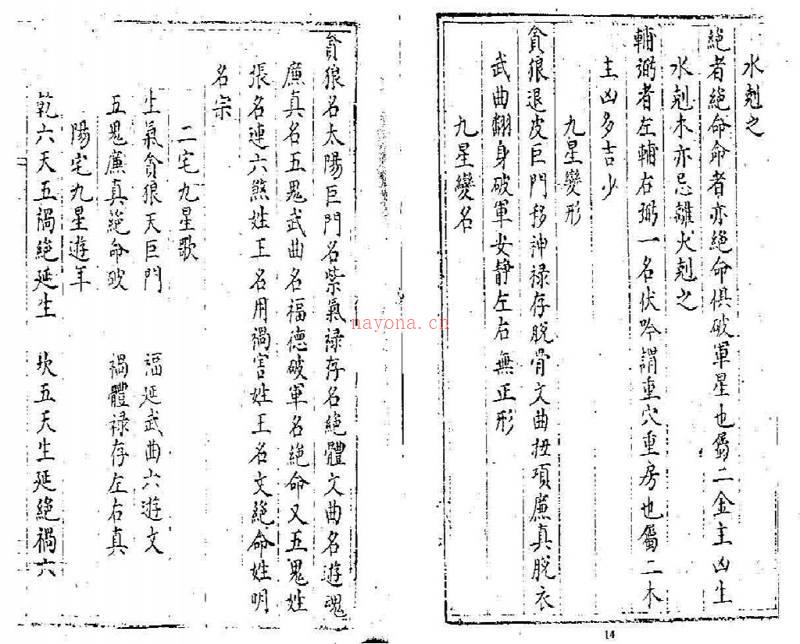 水剋之
絕者絕命命者亦絕命俱破軍星也屬二金主凶生
水剋木亦忌離火剋之
輔弼者左輔右弼一名伏吟謂重穴重房也屬二木
主凶多吉少
九星變形
貪狼退皮巨門移神禄存脫骨文曲扭項廉真脫衣
武曲翻身破軍女靜左右無正形
九星變名
14
貪狼名太陽巨門名紫氣禄存名絕體文曲名遊魂
廉真名五鬼武曲名福德破軍名絕命又五鬼姓
張名連六煞姓王名用禍害姓王名文絕命姓明
名宗
二宅九星歌
生氣貪狼天巨門 福延武曲六遊文
五鬼廉真絕命破 禍體禄存左右真
陽宅九星遊年
乾六天五禍絕延生 坎五天生延絕禍六
nayona.cn